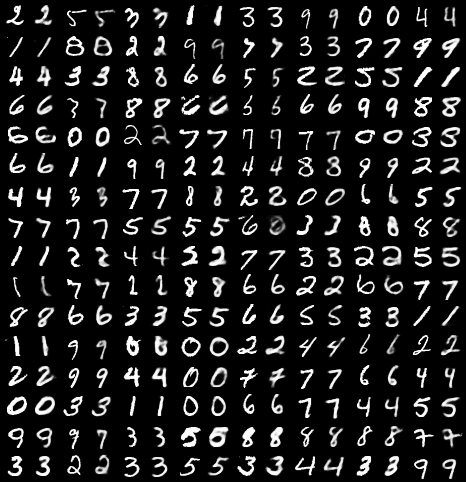 2 2 5 5 3 3 1 1 3 3 9 9 0 0 4 4
1 1 8 8 2 2 9 9 7 7 3 3 7 7 9 9
4 4 3 3 8 8 6 6 5 5 2 2 5 5 1 1
6 6 3 7 8 8 6 6 5 5 6 6 9 9 8 8
6 6 0 0 2 2 7 7 7 7 7 7 0 0 3 3
6 6 1 1 9 9 2 2 4 4 8 8 9 9 2 2
4 4 3 3 7 7 8 8 2 2 0 0 6 6 5 5
7 7 7 7 5 5 5 5 6 3 3 8 8 8 8
1 1 2 2 4 4 2 2 7 7 3 3 2 2 5 5
1 1 7 7 1 1 8 8 6 6 2 2 6 6 7 7
8 8 6 6 3 3 5 5 6 6 5 5 3 3 1 1
1 1 9 9 0 0 0 2 2 4 4 6 6 2 2
2 2 9 9 4 4 0 0 7 7 7 7 6 6 4 4
0 0 3 3 1 1 0 0 6 6 7 7 4 4 5 5
9 9 9 7 3 3 5 5 8 8 8 8 8 8 7 7
3 3 2 2 3 3 5 5 3 3 4 4 3 3 9 9